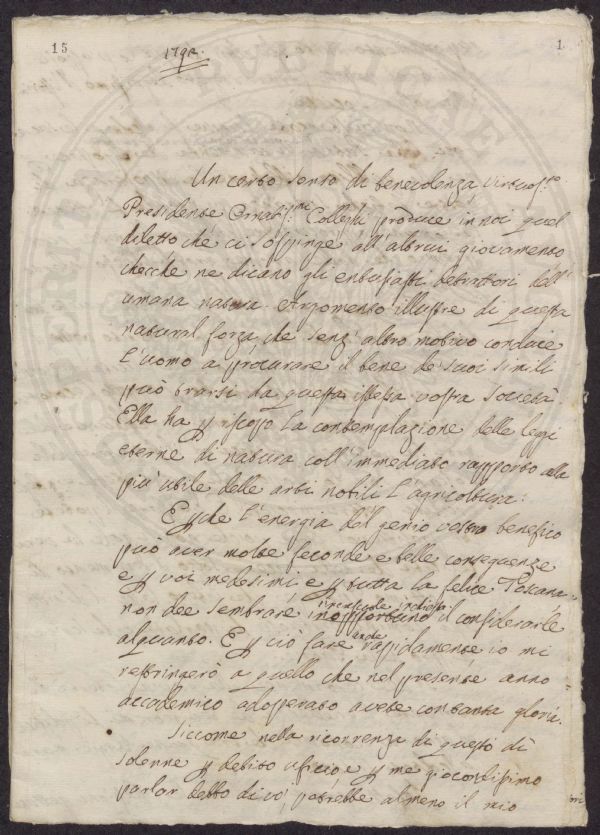 15
1
1792
Un certo senso di benevolenza Virtuos.mo
Presidente Ornatis.mi Colleghi produce in noi quel
diletto che ci sospinge all'altrui giovamento
checche ne dicano gli entusiasti detrattori dell'
umana natura. Argomento illustre di questa
natural forza che senz'altro motivo conduce
l'uomo a procurare il bene de' suoi simili
può trarsi da questa istessa vostra società.
Ella ha p iscopo la contemplazione delle leggi
eterne di natura coll'immediato rapporto alla
più utile delle arti nobili l'agricoltura:
E pche l'energia del genio vostro benefico
può aver molte feconde e belle conseguenze
e p voi medesimi e p tutta la felice Toscana
non dee sembrare inopportuno il considerarle
alquanto. E p ciò fare anche rapidamente io mi
restringerò a quello che nel presente anno
accademico adoperato avete con tanta gloria.
Siccome nella ricorrenza di questo dì
solenne p debito uficio e p me giocondissimo
parlar debbo di voi, potrebbe almeno il mio